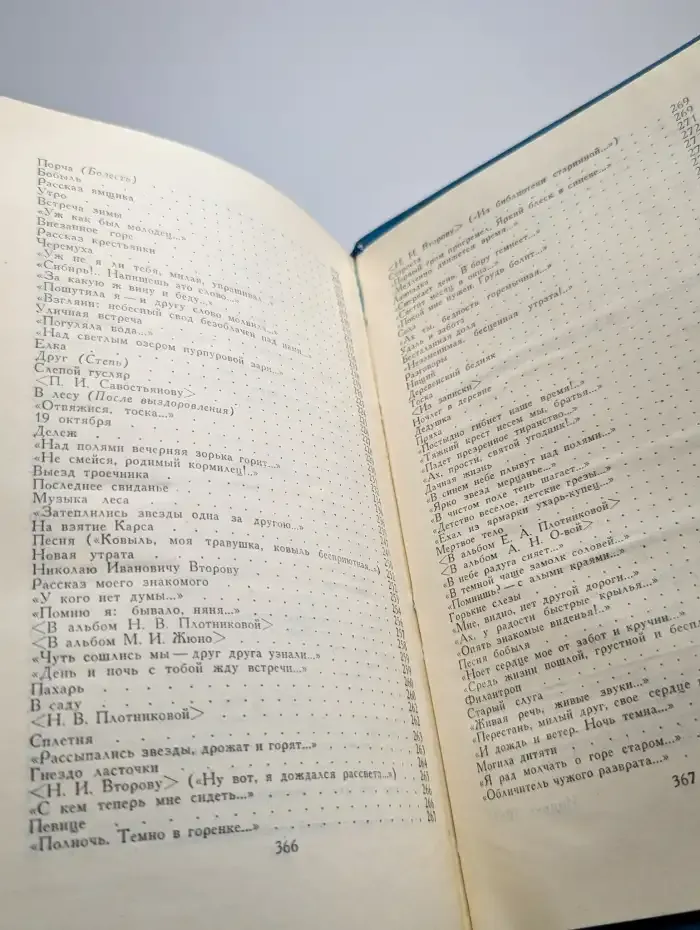 Порча (Болесть)
Бобыль
Рассказ ямщика
Утро
Встреча зимы
«Уж как был молодец...»
Внезапное горе
Рассказ крестьянки
Черемуха
«Уж не я ли тебя, милая, упрашивал...
«Сибирь!.. Напишешь это слово...»
«За какую ж вину и беду...»
«Пошутила я — и другу слово молвила...»
«Взгляни: небесный свод безоблачен над нами...
Уличная встреча
«Погуляла вода...»
«Над светлым озером пурпуровой зари...»
Елка
Друг (Степь)
Слепой гусляр
<П. И. Савостьянову>
В лесу (После выздоровления)
«Отвяжися, тоска...»
19 октября
Дележ
«Над полями вечерняя зорька горит...»
«Не смейся, родимый кормилец!..»
Выезд троечника
Последнее свиданье
Музыка леса
«Затеплились звезды одна за другою...»
На взятие Карса
Песня («Ковыль, моя травушка, ковыль бесприютная...»)
Новая утрата
Николаю Ивановичу Второву
Рассказ моего знакомого
«У кого нет думы...»
«Помню я: бывало, няня...»
<В альбом Н. В. Плотниковой>
<В альбом М. И. Жюно>
«Чуть сошлись мы — друг друга узнали...»
«День и ночь с тобой жду встречи...»
Пахарь
В саду
<Н. В. Плотниковой>
Сплетня 263
«Рассыпались звезды, дрожат и горят...» 263
Гнездо ласточки 264
<Н. И. Второву> («Ну вот, я дождался рассвета...») 265
«С кем теперь мне сидеть...» 266
Певице 266
«Полночь. Темно в горенке...» 267
366
<Н. И. Второву> («Из библиотеки старинной...») 269
Староста 269
«Первый гром прогремел. Яркий блеск в синеве...» 271
«Медленно движется время...»
Лампадка
«Смеркает день. В бору темнеет...»
«Светит месяц в окна...»
«Покой мне нужен. Грудь болит...»
Соха
«Ах ты, бедность горемычная...»
Удаль и забота
Бесталанная доля
«Незаменимая, бесценная утрата!..»
Разговоры
Нищий
Деревенский бедняк
Тоска
<Из записки>
Ночлег в деревне
Дедушка
Пряха
«Постыдно гибнет наше время!..»
«Тяжкий крест несем мы, братья...»
«Падет презренное тиранство...»
«Ах, прости, святой угодник!..»
Дачная жизнь
«В синем небе плывут над полями...»
«Ярко звезд мерцанье...»
«В чистом поле тень шагает...»
«Детство веселое, детские грезы...»
«Ехал из ярмарки ухарь-купец...»
Мертвое тело
<В альбом Е. А. Плотниковой>
<В альбом А. Н. О-вой>
«В небе радуга сияет...»
«В темной чаще замолк соловей...»
«Помнишь? — с алыми краями...»
Горькие слезы
«Мне, видно, нет другой дороги...»
«Ах, у радости быстрые крылья...»
«Опять знакомые виденья!..»
Песня бобыля
«Ноет сердце мое от забот и кручин...»
«Средь жизни пошлой, грустной и беспл
Филантроп
Старый слуга
«Живая речь, живые звуки...»
«Перестань, милый друг, свое сердце
«И дождь и ветер. Ночь темна...»
Могила дитяти
«Я рад молчать о горе старом...»
«Обличитель чужого разврата...»
367